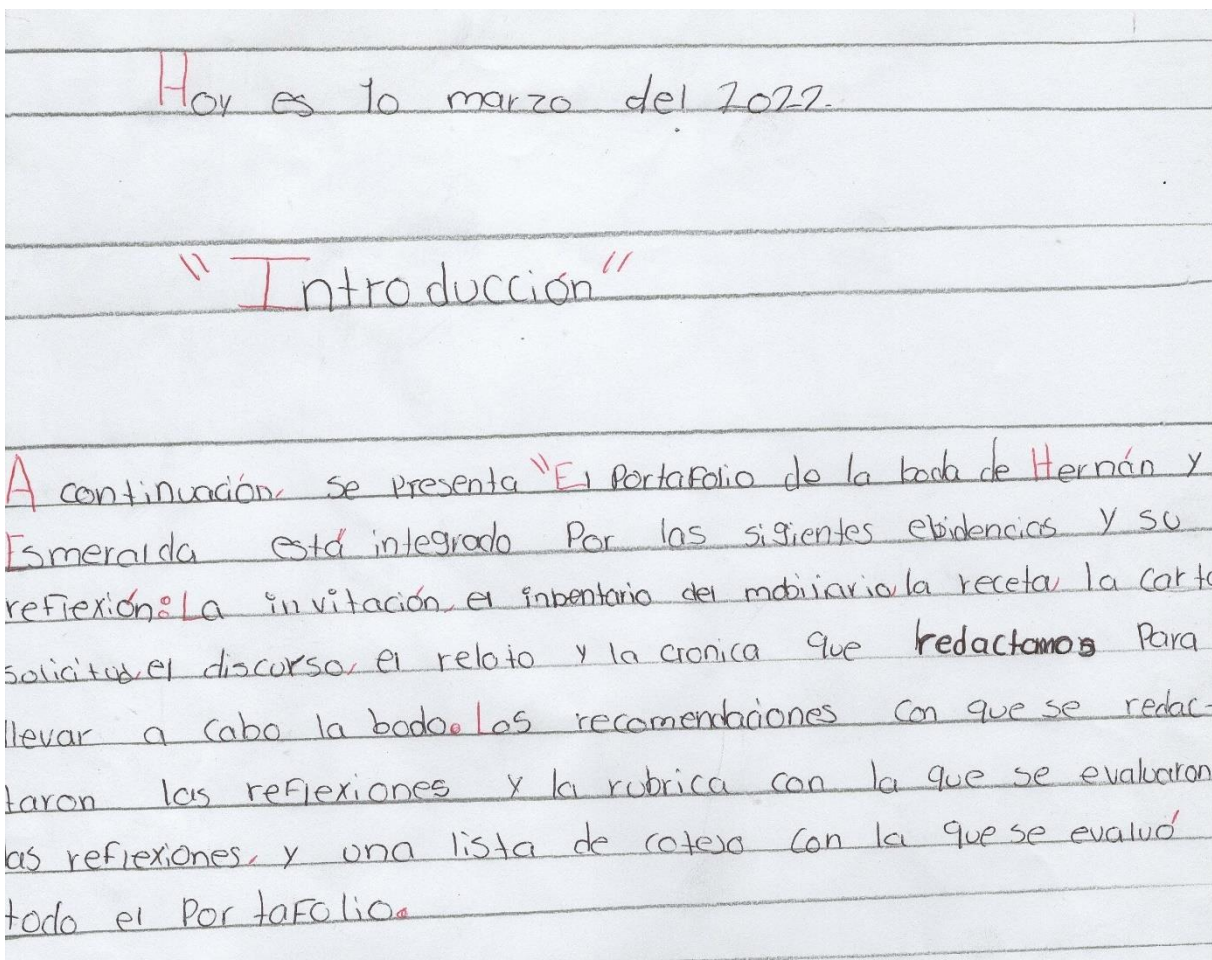 Hoy es 10 marzo del 2022.
"Introducción"
A continuación, se presenta "El Portafolio de la boda de Hernán y
Esmeralda está integrado Por las sigientes ebidencias y su
reflexión: La invitación, el inbentario del mobiliario, la receta, la carta
solicitud, el discurso, el relato y la cronica que redactamos Para
llevar a cabo la boda. Las recomendaciones con que se redac-
taron las reflexiones y la rubrica con la que se evaluaron
las reflexiones, y una lista de cotejo con la que se evaluó
todo el Portafolio.